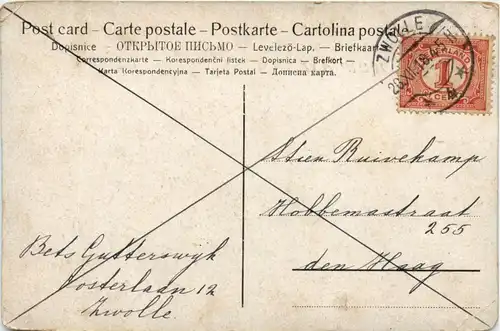 Post card - Carte postale - Postkarte - Cartolina postale
Dopisnice - ОТКРЫТОЕ ПИСЬМО - Levelező-Lap. - Briefkaart
Correspondenzkarte - Korespondenční listek - Dopisnica - Brefkort -
Karta Korespondencyjna - Tarjeta Postal - Дописна карта.
ZWOLLE
NEDERLAND
1
CENT
Stien Ruivekamp
Hobbemastraat
255
den Haag
Bets Gutterswyk
Oosterlaan 12
Zwolle.